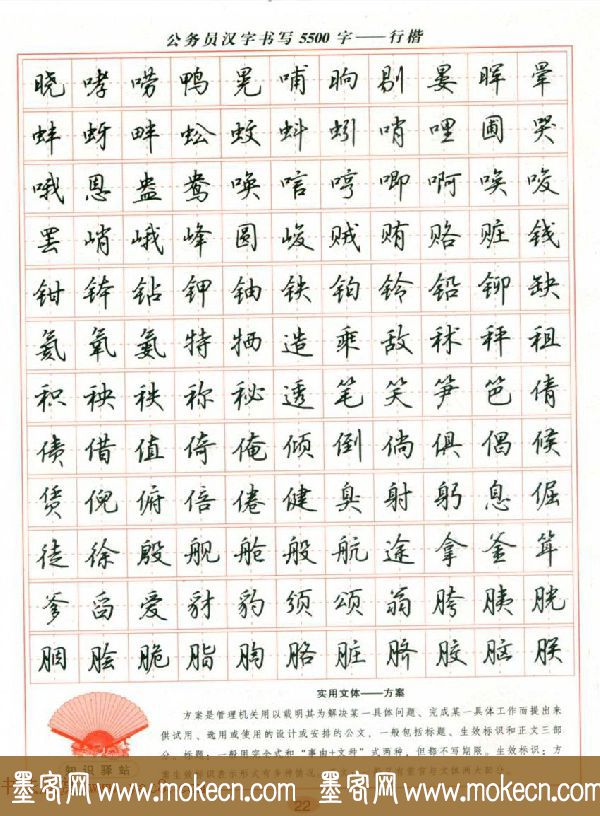 公务员汉字书写5500字——行楷
晓 哮 唠 鸭 晃 哺 晌 剔 晏 晖 晕
蚌 蚜 畔 蚣 蚊 蚪 蚓 哨 哩 圃 哭
哦 恩 盎 鸯 唤 唁 哼 唧 啊 唉 唆
罢 峭 峨 峰 圆 峻 贼 贿 赂 赃 钱
钳 钵 钻 钾 铀 铁 钧 铃 铅 铆 缺
氨 氧 氦 特 牺 造 乘 敌 秫 秤 租
积 秧 秩 称 秘 透 笔 笑 笋 笆 倩
债 借 值 倚 俺 倾 倒 倘 俱 倡 候
赁 倪 俯 倍 倦 健 臭 射 躬 息 倔
徒 徐 殷 舰 舱 般 航 途 拿 釜 耸
爹 舀 爱 豺 豹 颁 颂 翁 胯 胰 胱
胭 脍 脆 脂 胸 胳 脏 脐 胶 脑 朕
实用文体——方案
方案是管理机关用以载明其为解决某一具体问题、完成某一具体工作而提出来
供试用、选用或使用的设计或安排的公文。一般包括标题、生效标识和正文三部
分。标题:一般用完全式和“事由+文种”式两种,但都不写期限。生效标识:方
知识驿站
墨客网 www.mokecn.com 墨客网 www.mokecn.com
22